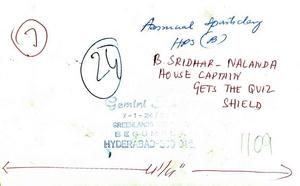 7
24
Annual Sports day
HPS (B)
B. SRIDHAR - NALANDA
HOUSE CAPTAIN
GETS THE QUIZ
SHIELD
Gemini
7-1-24
GREENLANDS
BEGUMPET
HYDERABAD-500 016
1109